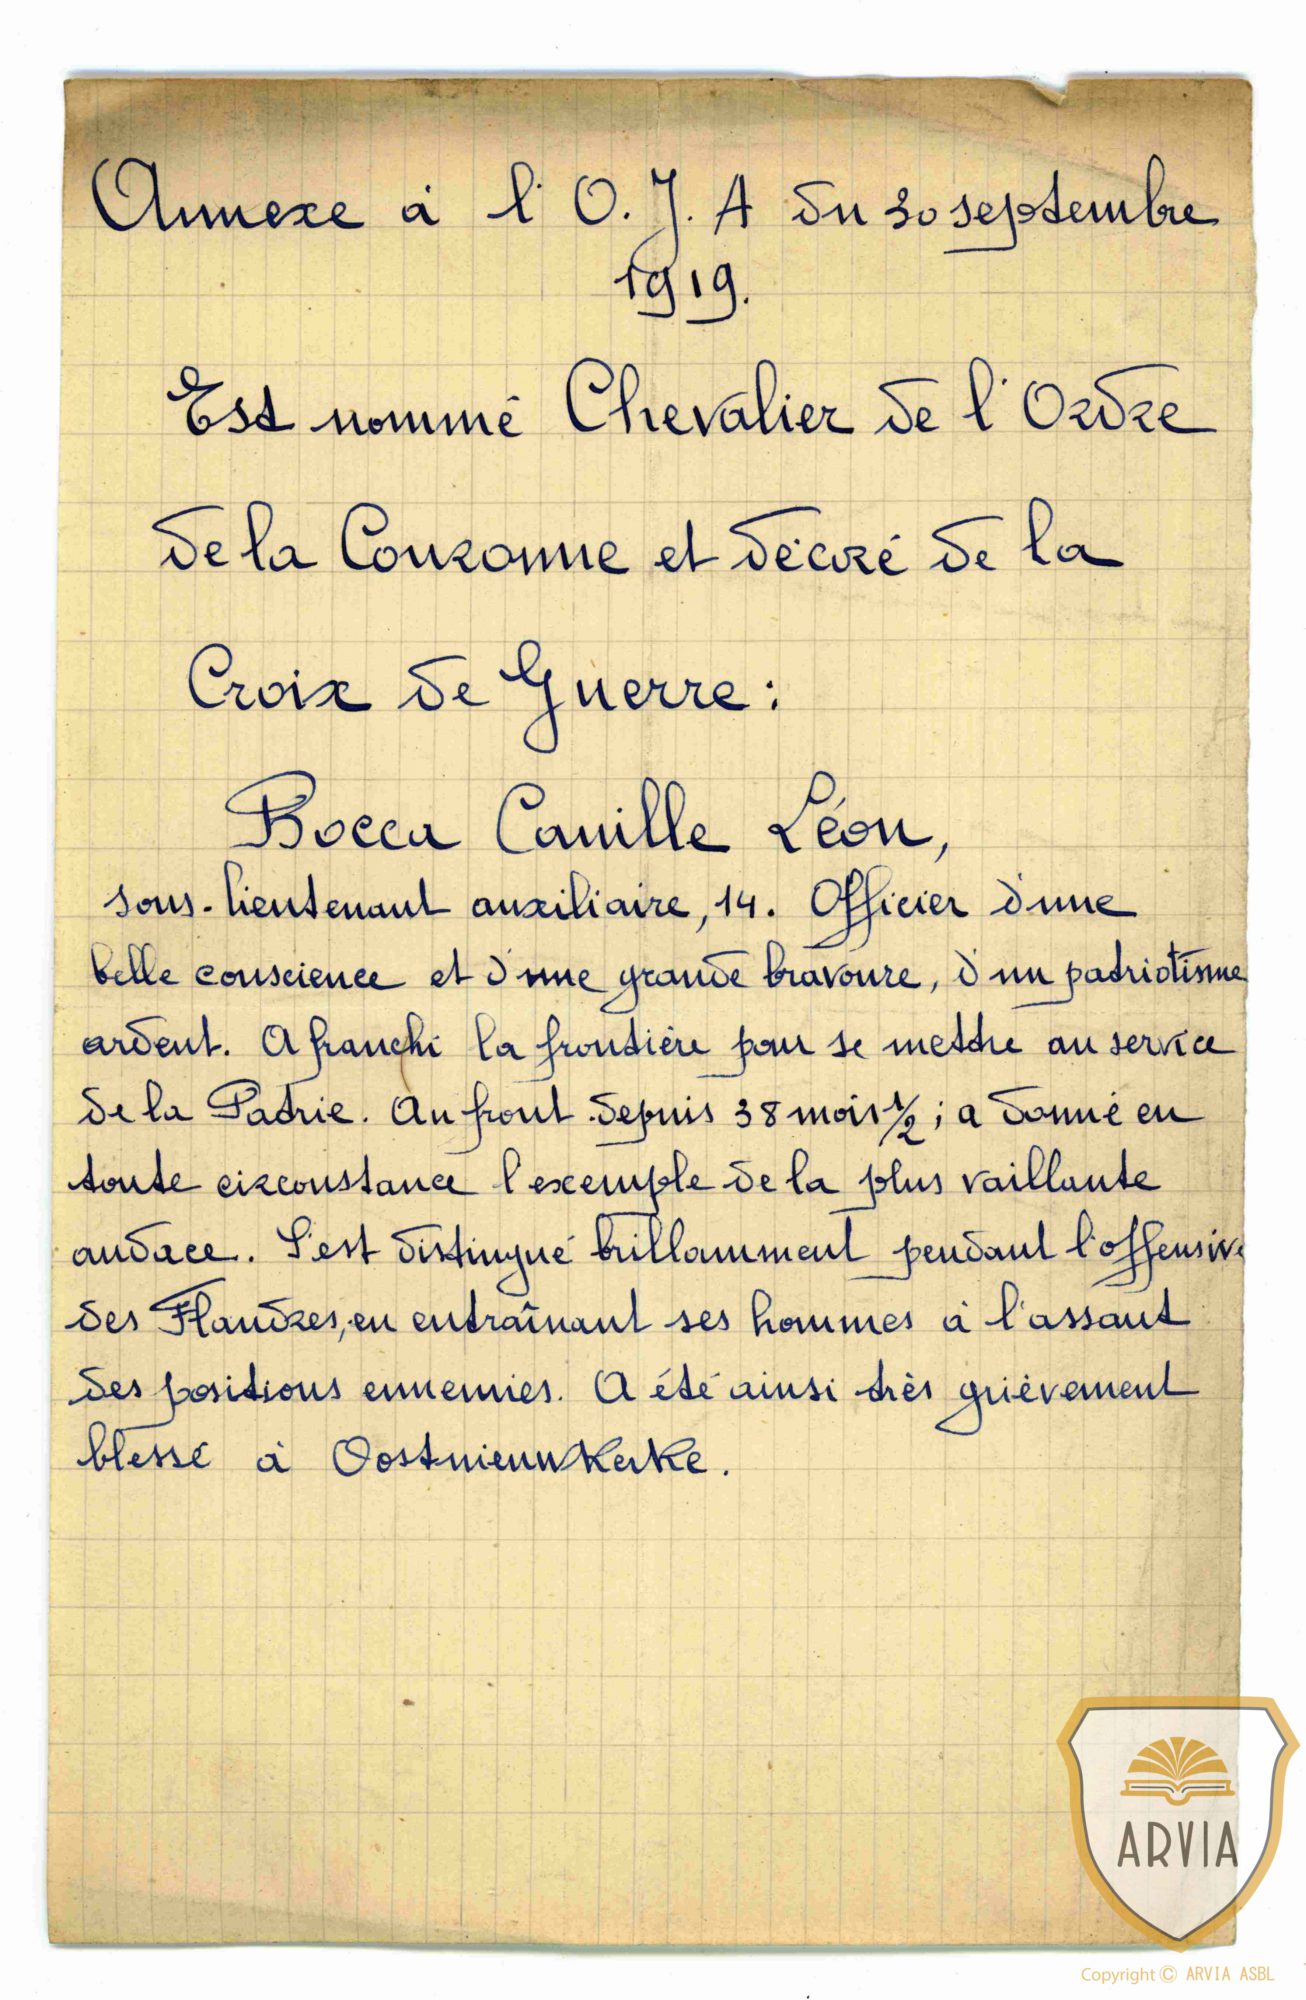 Annexe à l'O.J.A du 30 septembre
1919.
Est nommé Chevalier de l'Ordre
de la Couronne et décoré de la
Croix de Guerre :
Bocca Camille Léon,
sous-lieutenant auxiliaire, 14. Officier d'une
belle conscience et d'une grande bravoure, d'un patriotisme
ardent. A franchi la frontière pour se mettre au service
de la Patrie. Au front depuis 38 mois 1/2 ; a donné en
toute circonstance l'exemple de la plus vaillante
audace. S'est distingué brillamment pendant l'offensive
des Flandres, en entraînant ses hommes à l'assaut
des positions ennemies. A été ainsi très grièvement
blessé à Oostnieuwkerke.
ARVIA
Copyright © ARVIA ASBL